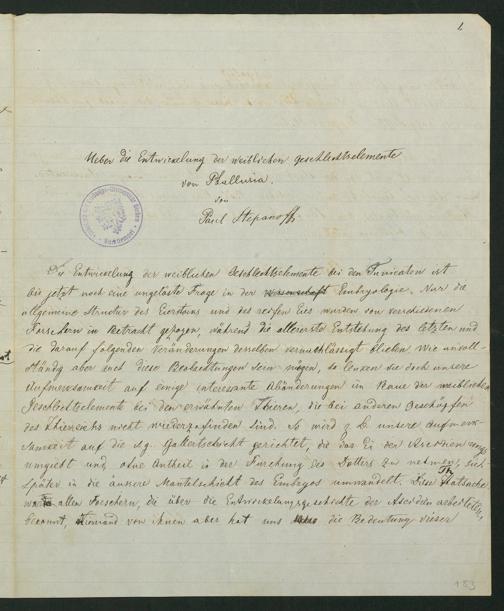 1
Ueber die Entwickelung der weiblichen Geschlechtselemente
von Phallusia.
von
Paul Stepanoff.
Die Entwickelung der weiblichen Geschlechtselemente bei den Tunicaten ist
bis jetzt noch eine ungelöste Frage in der Embryologie. Nur die
allgemeine Structur des Eierstocks und des reifen Eies wurden von verschiedenen
Forschern in Betracht gezogen, während die allererste Entstehung des letzten und
die darauf folgenden Veränderungen desselben vernachlässigt blieben. Wie unvoll-
ständig aber auch diese Beobachtungen sein mögen, so lenken sie doch unsere
Aufmerksamkeit auf einige interessante Abänderungen im Baue der weiblichen
Geschlechtselemente bei den erwähnten Thieren, die bei anderen Geschöpfen
des Thierreichs nicht wiederzufinden sind. So wird z. B. unsere Aufmerk-
samkeit auf die sg. Gallertschicht gerichtet, die das Ei der Ascidien
umgiebt und, ohne Antheil in der Furchung des Dotters zu nehmen, sich
später in die äussere Mantelschicht des Embryos umwandelt. Diese Thatsache
allen Forschern, die über die Entwickelungsgeschichte der Ascidien arbeiteten,
bekannt, Niemand von ihnen aber hat uns die Bedeutung dieser
183